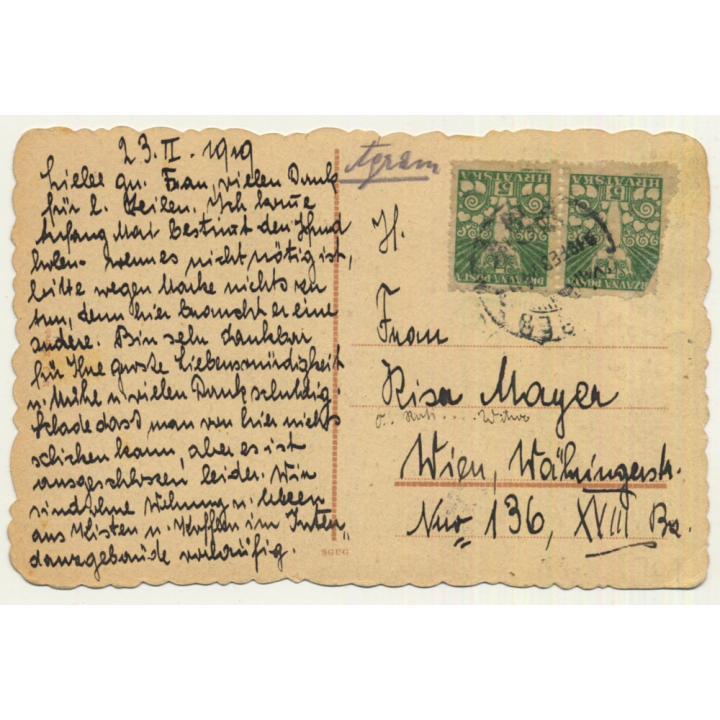 23. II. 1919
Liebe gn. Frau, vielen Dank
für l. Zeilen. Ich lasse
Anfang Mai bestimt den Hund
holen. wenn es nicht nötig ist,
bitte wegen Marke nichts zu
tun, denn hier braucht er eine
andere. Bin sehr dankbar
für Ihre große Liebenswürdigkeit
u. Mühe u. vielen Dank schuldig.
Schade dass man von hier nichts
schicken kann, aber es ist
ausgeschlossen leider. Wir
sind ohne Wohnung u. leben
aus Kisten u. Koffern im Inten„
danzgebäude vorläufig.
Agram
HRVATSKA 5
DRŽAVNA POŠTA
HRVATSKA 5
DRŽAVNA POŠTA
H.
Frau
Risa Mayer
Wien, Währingerstr.
Nro 136, XVIII Bz.